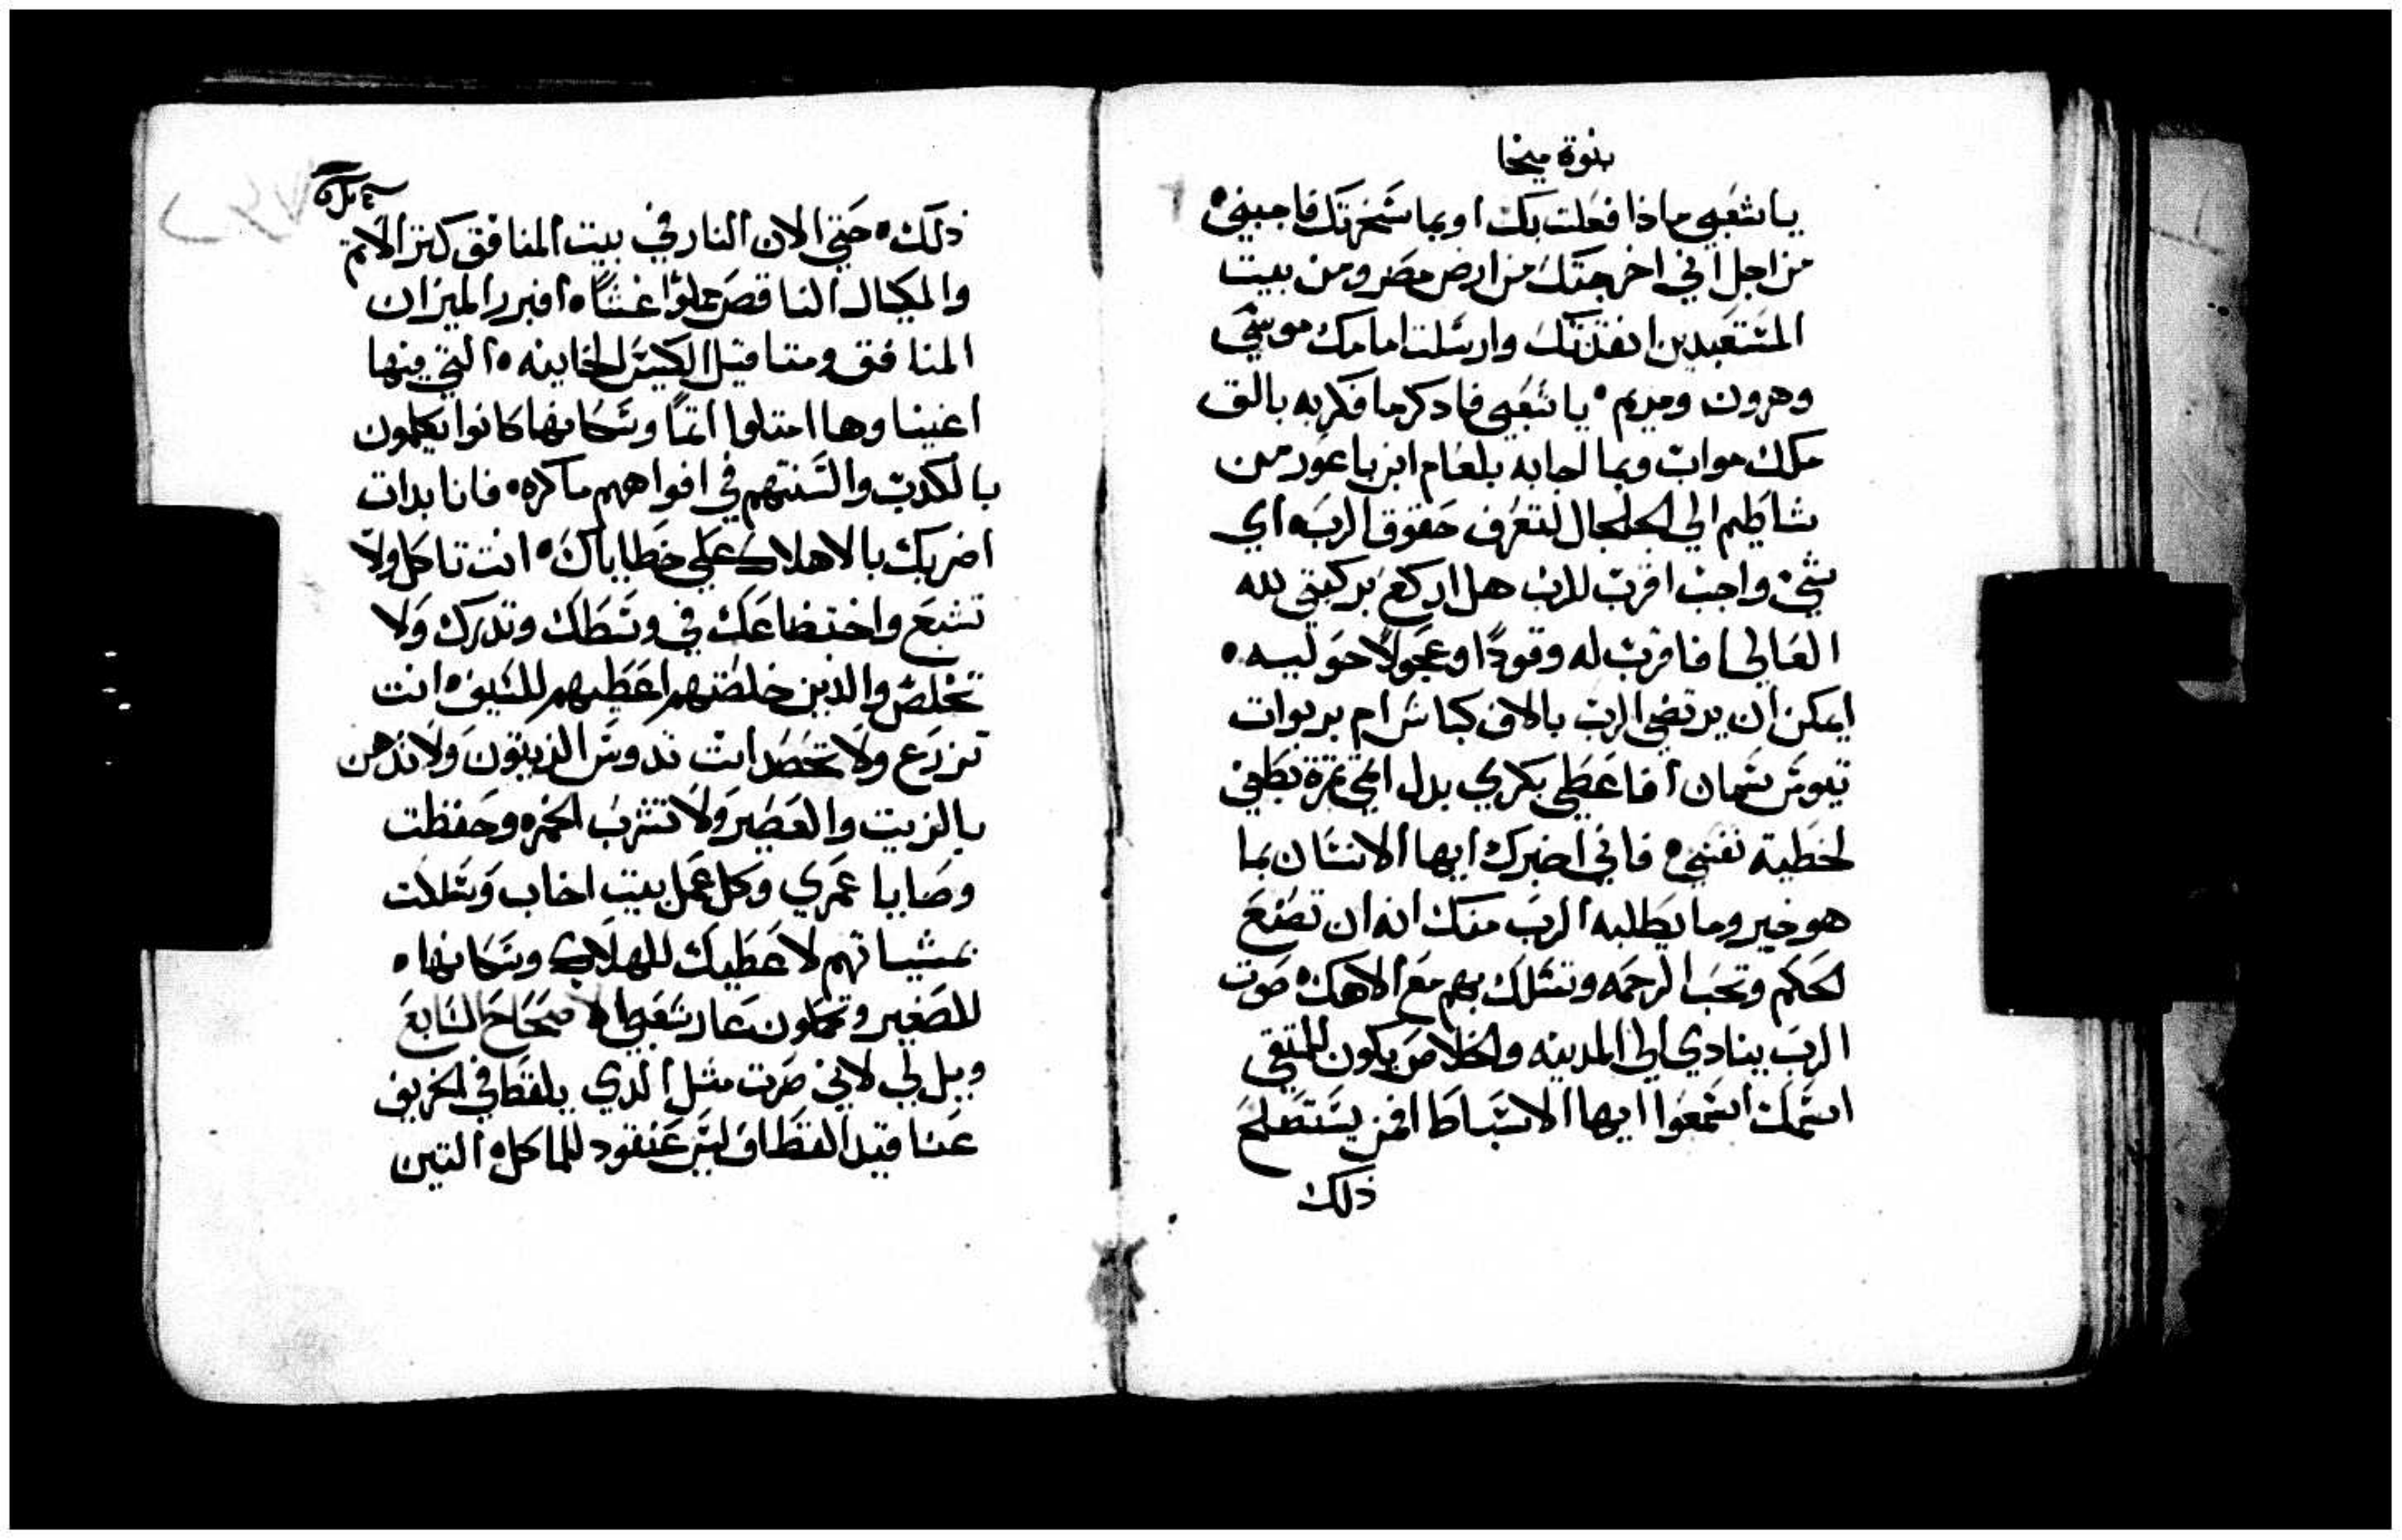 بنوة ميخا
يا شعبي ماذا فعلت بك او بما سخرتك فاجبني
من اجل اني اخرجتك من ارض مصر ومن بيت
المتعبدين انقذتك وارسلت امامك موسي
وهرون ومريم يا شعبي فادكر ما فكر به بالق
ملك مواب وبما اجابه بلعام ابن باعور من
شاطيم الي الجلجال لتعرف حقوق الرب اي
شي واجب اقرب للرب هل اركع بركبتي لله
العالي افاقرب له وقودًا وعجولًا حوليه
ايمكن ان يرتضي الرب بالاف كباش ام بربوات
تيوس سمان افاعطي بكري بدل اثمي ثمرة بطني
لخطية نفسي فاني اخبرك ايها الانسان بما
هو خير وما يطلبه الرب منك انه ان تصنع
الحكم وتحب الرحمه وتسلك بهم مع الاهك صوت
الرب ينادي الي المدينه والخلاص يكون للمتقي
اسمك اسمعوا ايها الاسباط افمن يستصلح
ذلك
ذلك حتي الان النار في بيت المنافق كنز الاثم
والمكيال الناقص مملوا غشًا افيبرر الميزان
المنافق ومثاقيل الكيس الخاينه التي منها
اغنيناوها امتلوا اثمًا وسكانها كانوا يتكلمون
بالكدب والسنتهم في افواههم ماكره فانا بدات
اضربك بالاهلاك علي خطاياك انت تاكل ولا
تشبع واختضاعك في وسطك وتدرك ولا
تخلص والذين خلصتهم اعطيهم للسيف انت
تزرع ولا تحصد انت تدوس الزيتون ولا تدهن
بالزيت والعصير ولا تشرب الخمره وحفظت
وصايا عمري وكل عمل بيت اخاب وسلكت
بمشياتهم لاعطيك للهلاك وسكانها
للصغير وتحملون عار شعبي الاصحاح السابع
ويل لي لاني صرت مثل الذي يلقط في الخريف
عناقيد القطاف ليس عنقود للماكل التين